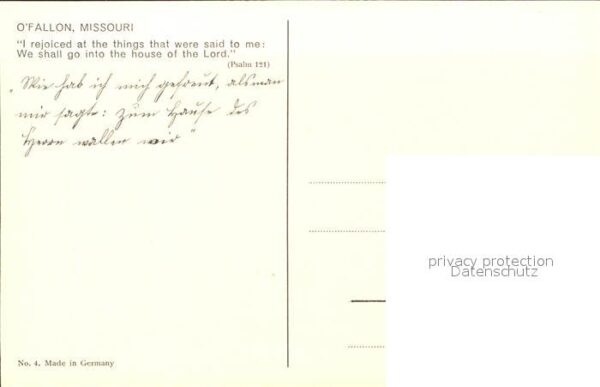 O'FALLON, MISSOURI
"I rejoiced at the things that were said to me:
We shall go into the house of the Lord."
(Psalm 121)
„Wie hab ich mich gefreut, als man
mir sagte: zum Hause des
Herrn wallen wir"
privacy protection
Datenschutz
No. 4. Made in Germany